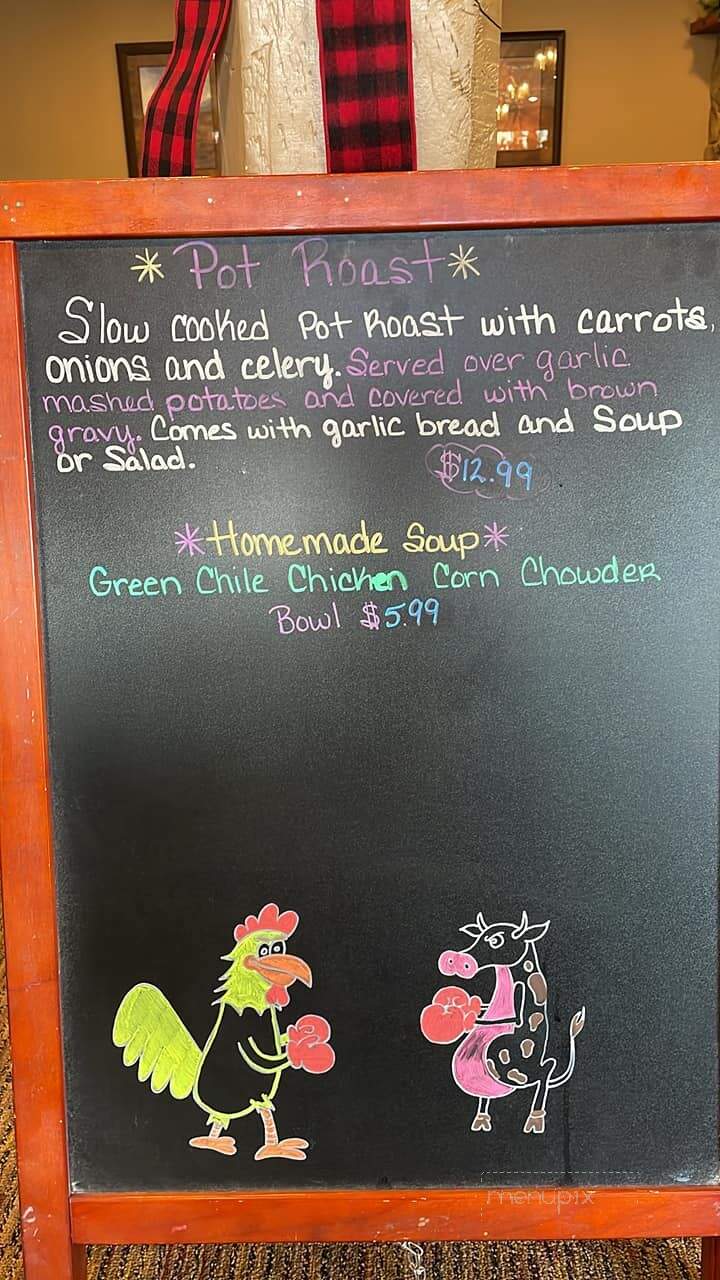 *Pot Roast*
Slow cooked Pot Roast with carrots,
onions and celery. Served over garlic
mashed potatoes and covered with brown
gravy. Comes with garlic bread and Soup
or Salad.
$12.99
*Homemade Soup*
Green Chile Chicken Corn Chowder
Bowl $5.99
menupix